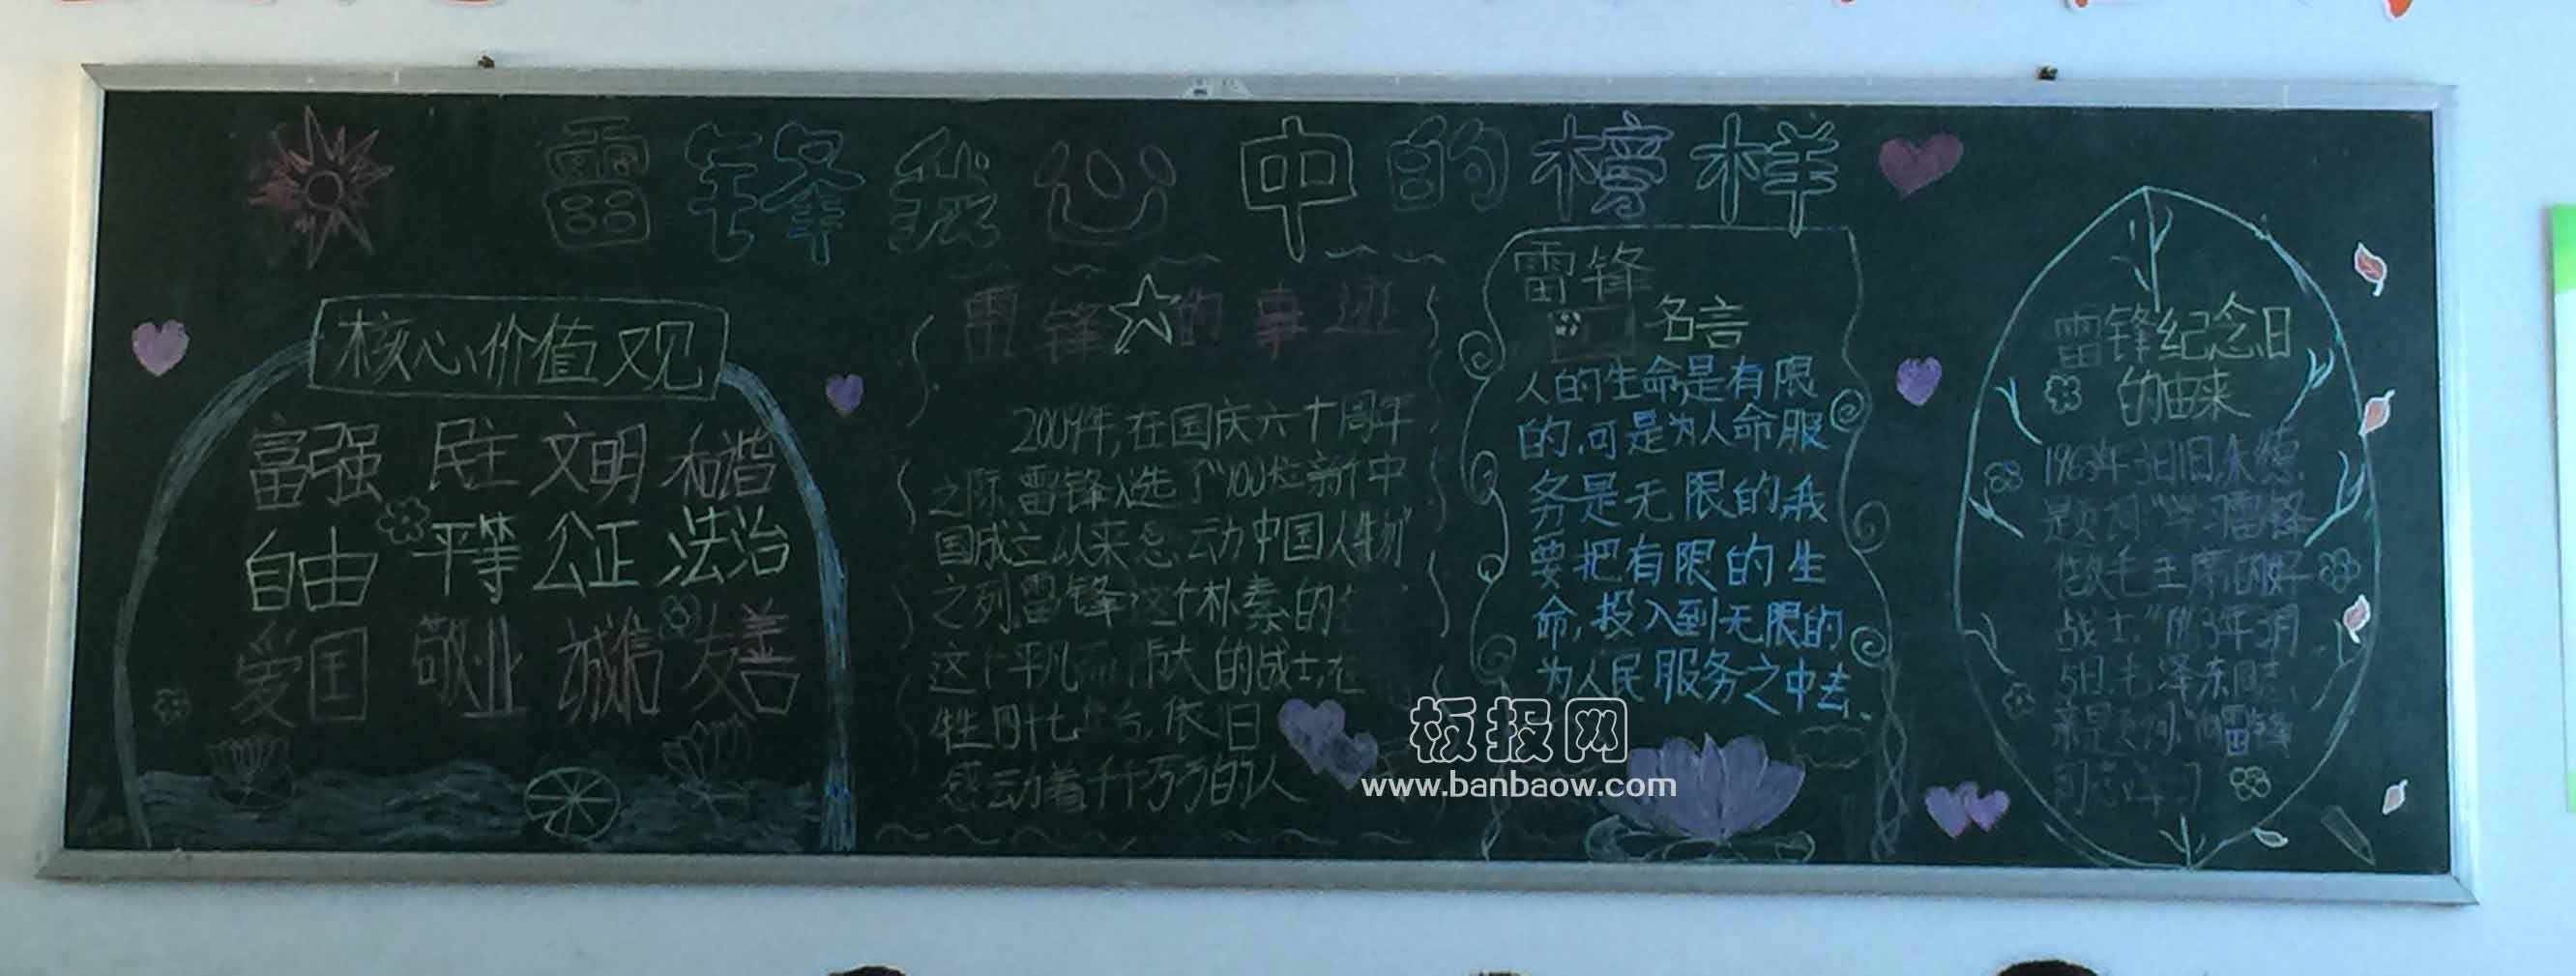 雷锋我心中的榜样
核心价值观
富强 民主 文明 和谐
自由 平等 公正 法治
爱国 敬业 诚信 友善
雷锋的事迹
2009年,在国庆六十周年
之际,雷锋入选了"100位新中
国成立以来感动中国人物"
之列.雷锋这个朴素的
这个平凡而伟大的战士,在
牲 依旧
感动着千千万万的人
雷锋
名言
人的生命是有限
的,可是为人命服
务是无限的我
要把有限的生
命,投入到无限的
为人民服务之中去.
雷锋纪念日
的由来
1963年3日1日,朱德,
是页词"学习雷锋
做毛主席的好
战士"1963年3月
5日,毛泽东同志
雷锋
板报网
www.banbaow.com